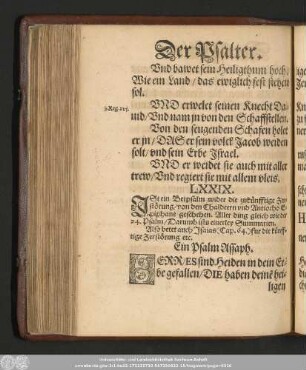 Der Psalter.
Vnd bawet sein Heiligthum hoch/
Wie ein Land/das ewiglich fest stehen
sol.
VND erwelet seinen Knecht Da-
uid/Vnd nam jn von den Schaffstellen.
Von den seugenden Schafen holet
er jn/DAS er sein volck Jacob weiden
solt/vnd sein Erbe Israel.
VND er weidet sie auch mit aller
trew/Vnd regiert sie mit allem vleis.
LXXIX.
ISt ein Betpsalm wider die zukünfftige Zur-
störung/von den Chaldeern vnd Antiocho E-
piphane geschehen. Aller ding gleich wie der
74. Psalm/Darumb
Also betet auch Isaias/Cap. 64. fur die künff-
tige Zerstörung etc.
Ein Psalm Assaph.
HERR/ES sind Heiden in dein Er-
be gefallen/DIE haben deine hei-
ligen